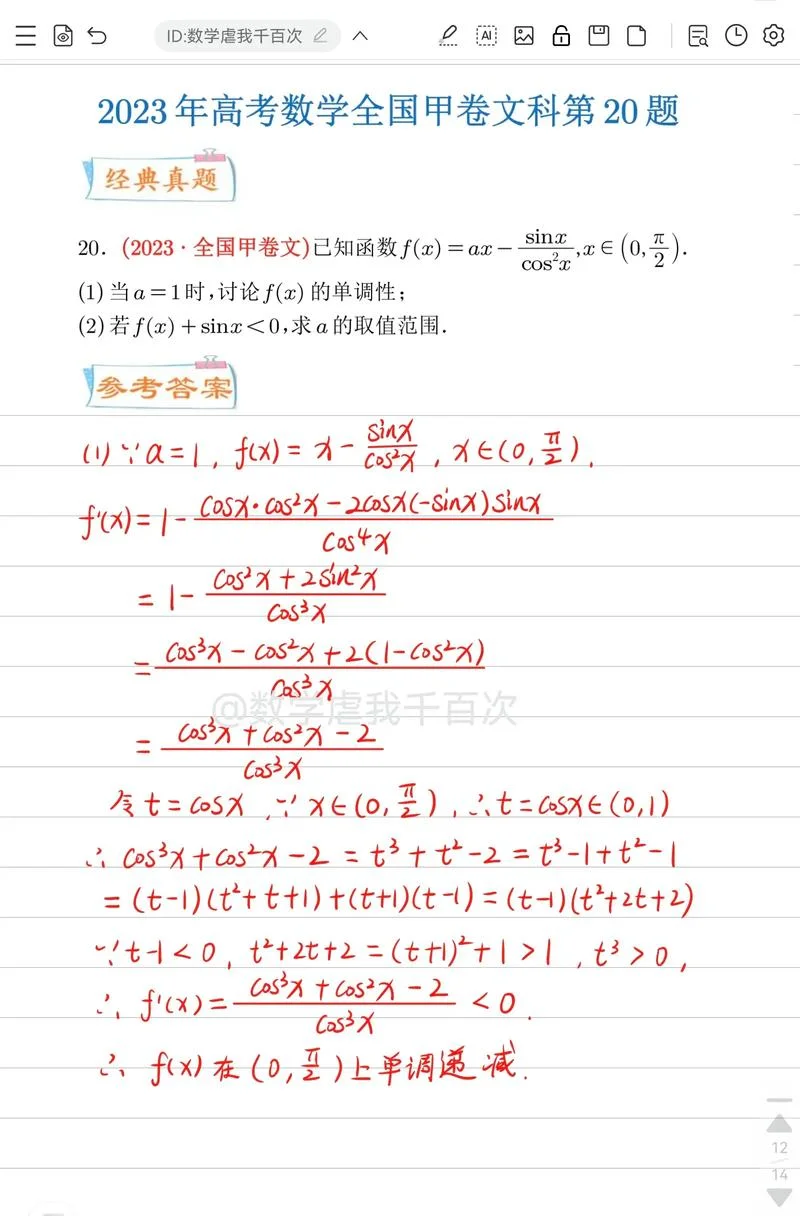 ID:数学虐我千百次
AI
2023年高考数学全国甲卷文科第20题
经典真题
20.(2023·全国甲卷文)已知函数f(x)=ax-sinx/cos²x,x∈(0,π/2).
(1)当a=1时,讨论f(x)的单调性;
(2)若f(x)+sinx<0,求a的取值范围.
参考答案
(1)∵a=1, f(x)=x-sinx/cos²x, x∈(0,π/2).
f'(x)=1-(cosx·cos²x-2cosx(-sinx)sinx)/cos⁴x
=1-(cos²x+2sin²x)/cos³x
=(cos³x-cos²x+2(1-cos²x))/cos³x
@数学虐我千百次
=(cos³x+cos²x-2)/cos³x
令t=cosx,∵x∈(0,π/2),∴t=cosx∈(0,1)
∴cos³x+cos²x-2=t³+t²-2=t³-1+t²-1
=(t-1)(t²+t+1)+(t+1)(t-1)=(t-1)(t²+2t+2)
∵t-1<0, t²+2t+2=(t+1)²+1>1, t³>0,
∴f'(x)=(cos³x+cos²x-2)/cos³x<0.
∴f(x)在(0,π/2)上单调递减.
12
14